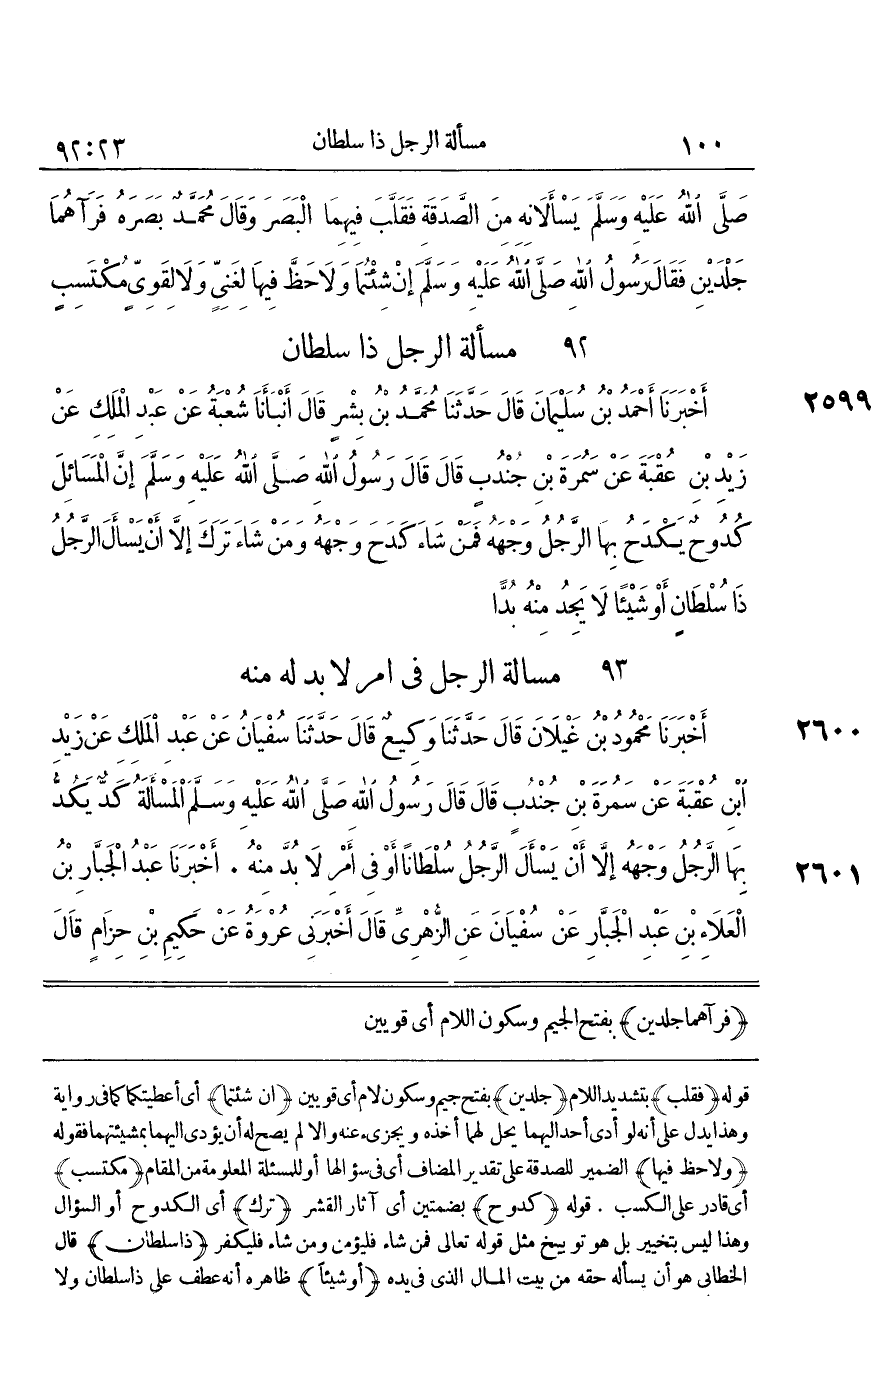 ١٠٠ مسألة الرجل ذا سلطان ٢٣:٩٢
صَلَّى اللهُ عَلَيْهِ وَسَلَّمَ يَسْأَلَانِهِ مِنَ الصَّدَقَةِ فَقَلَّبَ فِيهِمَا الْبَصَرَ وَقَالَ مُحَمَّدٌ بَصَرَهُ فَرَآهُمَا
جَلْدَيْنِ فَقَالَ رَسُولُ اللهِ صَلَّى اللهُ عَلَيْهِ وَسَلَّمَ إِنْ شِئْتُمَا وَلَا حَظَّ فِيهَا لِغَنِيٍّ وَلَا لِقَوِيٍّ مُكْتَسِبٍ
٩٢ مسألة الرجل ذا سلطان
٢٥٩٩ أَخْبَرَنَا أَحْمَدُ بْنُ سُلَيْمَانَ قَالَ حَدَّثَنَا مُحَمَّدُ بْنُ بِشْرٍ قَالَ أَنْبَأَنَا شُعْبَةُ عَنْ عَبْدِ الْمَلِكِ عَنْ
زَيْدِ بْنِ عُقْبَةَ عَنْ سَمُرَةَ بْنِ جُنْدُبٍ قَالَ قَالَ رَسُولُ اللهِ صَلَّى اللهُ عَلَيْهِ وَسَلَّمَ إِنَّ الْمَسَائِلَ
كُدُوحٌ يَكْدَحُ بِهَا الرَّجُلُ وَجْهَهُ فَمَنْ شَاءَ كَدَحَ وَجْهَهُ وَمَنْ شَاءَ تَرَكَ إِلَّا أَنْ يَسْأَلَ الرَّجُلُ
ذَا سُلْطَانٍ أَوْ شَيْئًا لَا يَجِدُ مِنْهُ بُدًّا
٩٣ مسالة الرجل فى امر لا بد له منه
٢٦٠٠ أَخْبَرَنَا مَحْمُودُ بْنُ غَيْلَانَ قَالَ حَدَّثَنَا وَكِيعٌ قَالَ حَدَّثَنَا سُفْيَانُ عَنْ عَبْدِ الْمَلِكِ عَنْ زَيْدِ
ابْنِ عُقْبَةَ عَنْ سَمُرَةَ بْنِ جُنْدُبٍ قَالَ قَالَ رَسُولُ اللهِ صَلَّى اللهُ عَلَيْهِ وَسَلَّمَ الْمَسْأَلَةُ كَدٌّ يَكُدُّ
٢٦٠١ بِهَا الرَّجُلُ وَجْهَهُ إِلَّا أَنْ يَسْأَلَ الرَّجُلُ سُلْطَانًا أَوْ فِى أَمْرٍ لَا بُدَّ مِنْهُ . أَخْبَرَنَا عَبْدُ الْجَبَّارِ بْنُ
الْعَلَاءِ بْنِ عَبْدِ الْجَبَّارِ عَنْ سُفْيَانَ عَنِ الزُّهْرِىِّ قَالَ أَخْبَرَنِى عُرْوَةُ عَنْ حَكِيمِ بْنِ حِزَامٍ قَالَ
﴿فرآهما جلدين﴾ بفتح الجيم وسكون اللام أى قويين
قوله ﴿فقلب﴾ بتشديد اللام ﴿جلدين﴾ بفتح جيم وسكون لام أى قويين ﴿ان شئتما﴾ أى أعطيتكما كما فى رواية
وهذا يدل على أنه لو أدى أحد اليهما يحل لهما أخذه ويجزىء عنه والا لم يصح له أن يؤدى اليهما بمشيئتهما فقوله
﴿ولا حظ فيها﴾ الضمير للصدقة على تقدير المضاف أى فى سؤالها أو للمسئلة المعلومة من المقام ﴿مكتسب﴾
أى قادر على الكسب . قوله ﴿كدوح﴾ بضمتين أى آثار القشر ﴿ترك﴾ أى الكدوح أو السؤال
وهذا ليس بتخيير بل هو توبيخ مثل قوله تعالى فمن شاء فليؤمن ومن شاء فليكفر ﴿ذا سلطان﴾ قال
الخطابى هو أن يسأله حقه من بيت المال الذى فى يده ﴿أو شيئا﴾ ظاهره أنه عطف على ذا سلطان ولا